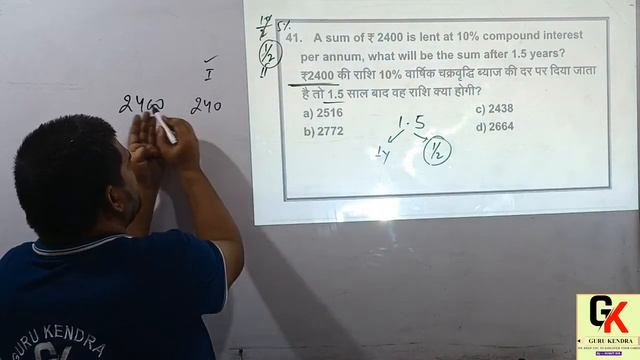 41. A sum of ₹ 2400 is lent at 10% compound interest
per annum, what will be the sum after 1.5 years?
₹2400 की राशि 10% वार्षिक चक्रवृद्धि ब्याज की दर पर दिया जाता
है तो 1.5 साल बाद वह राशि क्या होगी?
a) 2516 c) 2438
b) 2772 d) 2664
5%
1/2
1.5
1y 1/2
I
2400 240
GURU KENDRA
GK
GK
GURU KENDRA